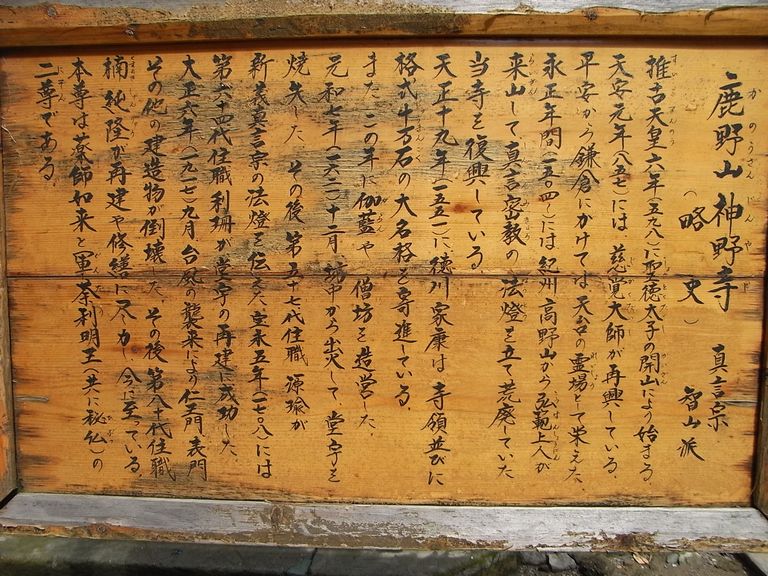 鹿野山神野寺 真言宗 智山派
(略史)
推古天皇六年(五九八)に聖徳太子の開山により始まる。
天安元年(八五七)には、慈覚大師が再興している。
平安から鎌倉にかけては天台の霊場として栄えた。
永正年間(一五〇四)には紀州高野山から弘範上人が
来山して真言密教の法燈を立て荒廃していた
当寺を復興している。
天正十九年(一五五一)に、徳川家康は寺領並びに
格式十万石の大名格を寄進している。
また、この年に伽藍や僧坊を造営した。
元和七年(一六二一)十二月、城中から出火して、堂宇を
焼失した。その後第五十七代住職 源瑜が
新義真言宗の法燈を伝えた。宝永五年(一七〇八)には
第六十四代住職利珊が堂宇の再建に成功した。
大正六年(一九一七)九月、台風の襲来により仁王門、表門
その他の建造物が倒壊した。その後第八十代住職
楠純隆が再建や修繕に尽力し、今に至っている。
本尊は薬師如来と軍荼利明王(共に秘仏)の
二尊である。